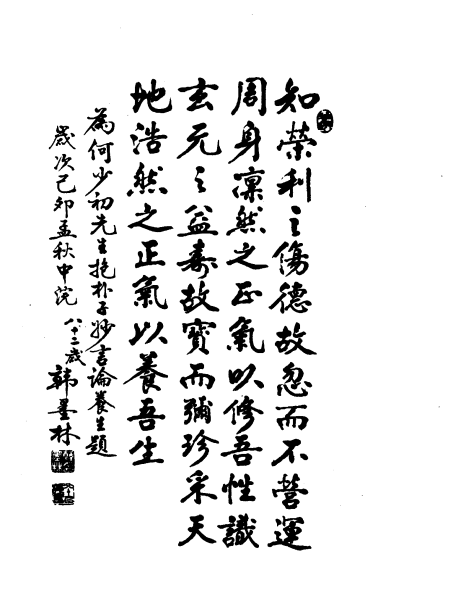 知榮利之傷德故忽而不營運
周身凜然之正氣以修吾性識
玄元之益壽故寶而彌珍采天
地浩然之正氣以養吾生
為何少初先生抱朴子妙言論養生題
歲次己卯孟秋中浣 八十二歲 韓墨林